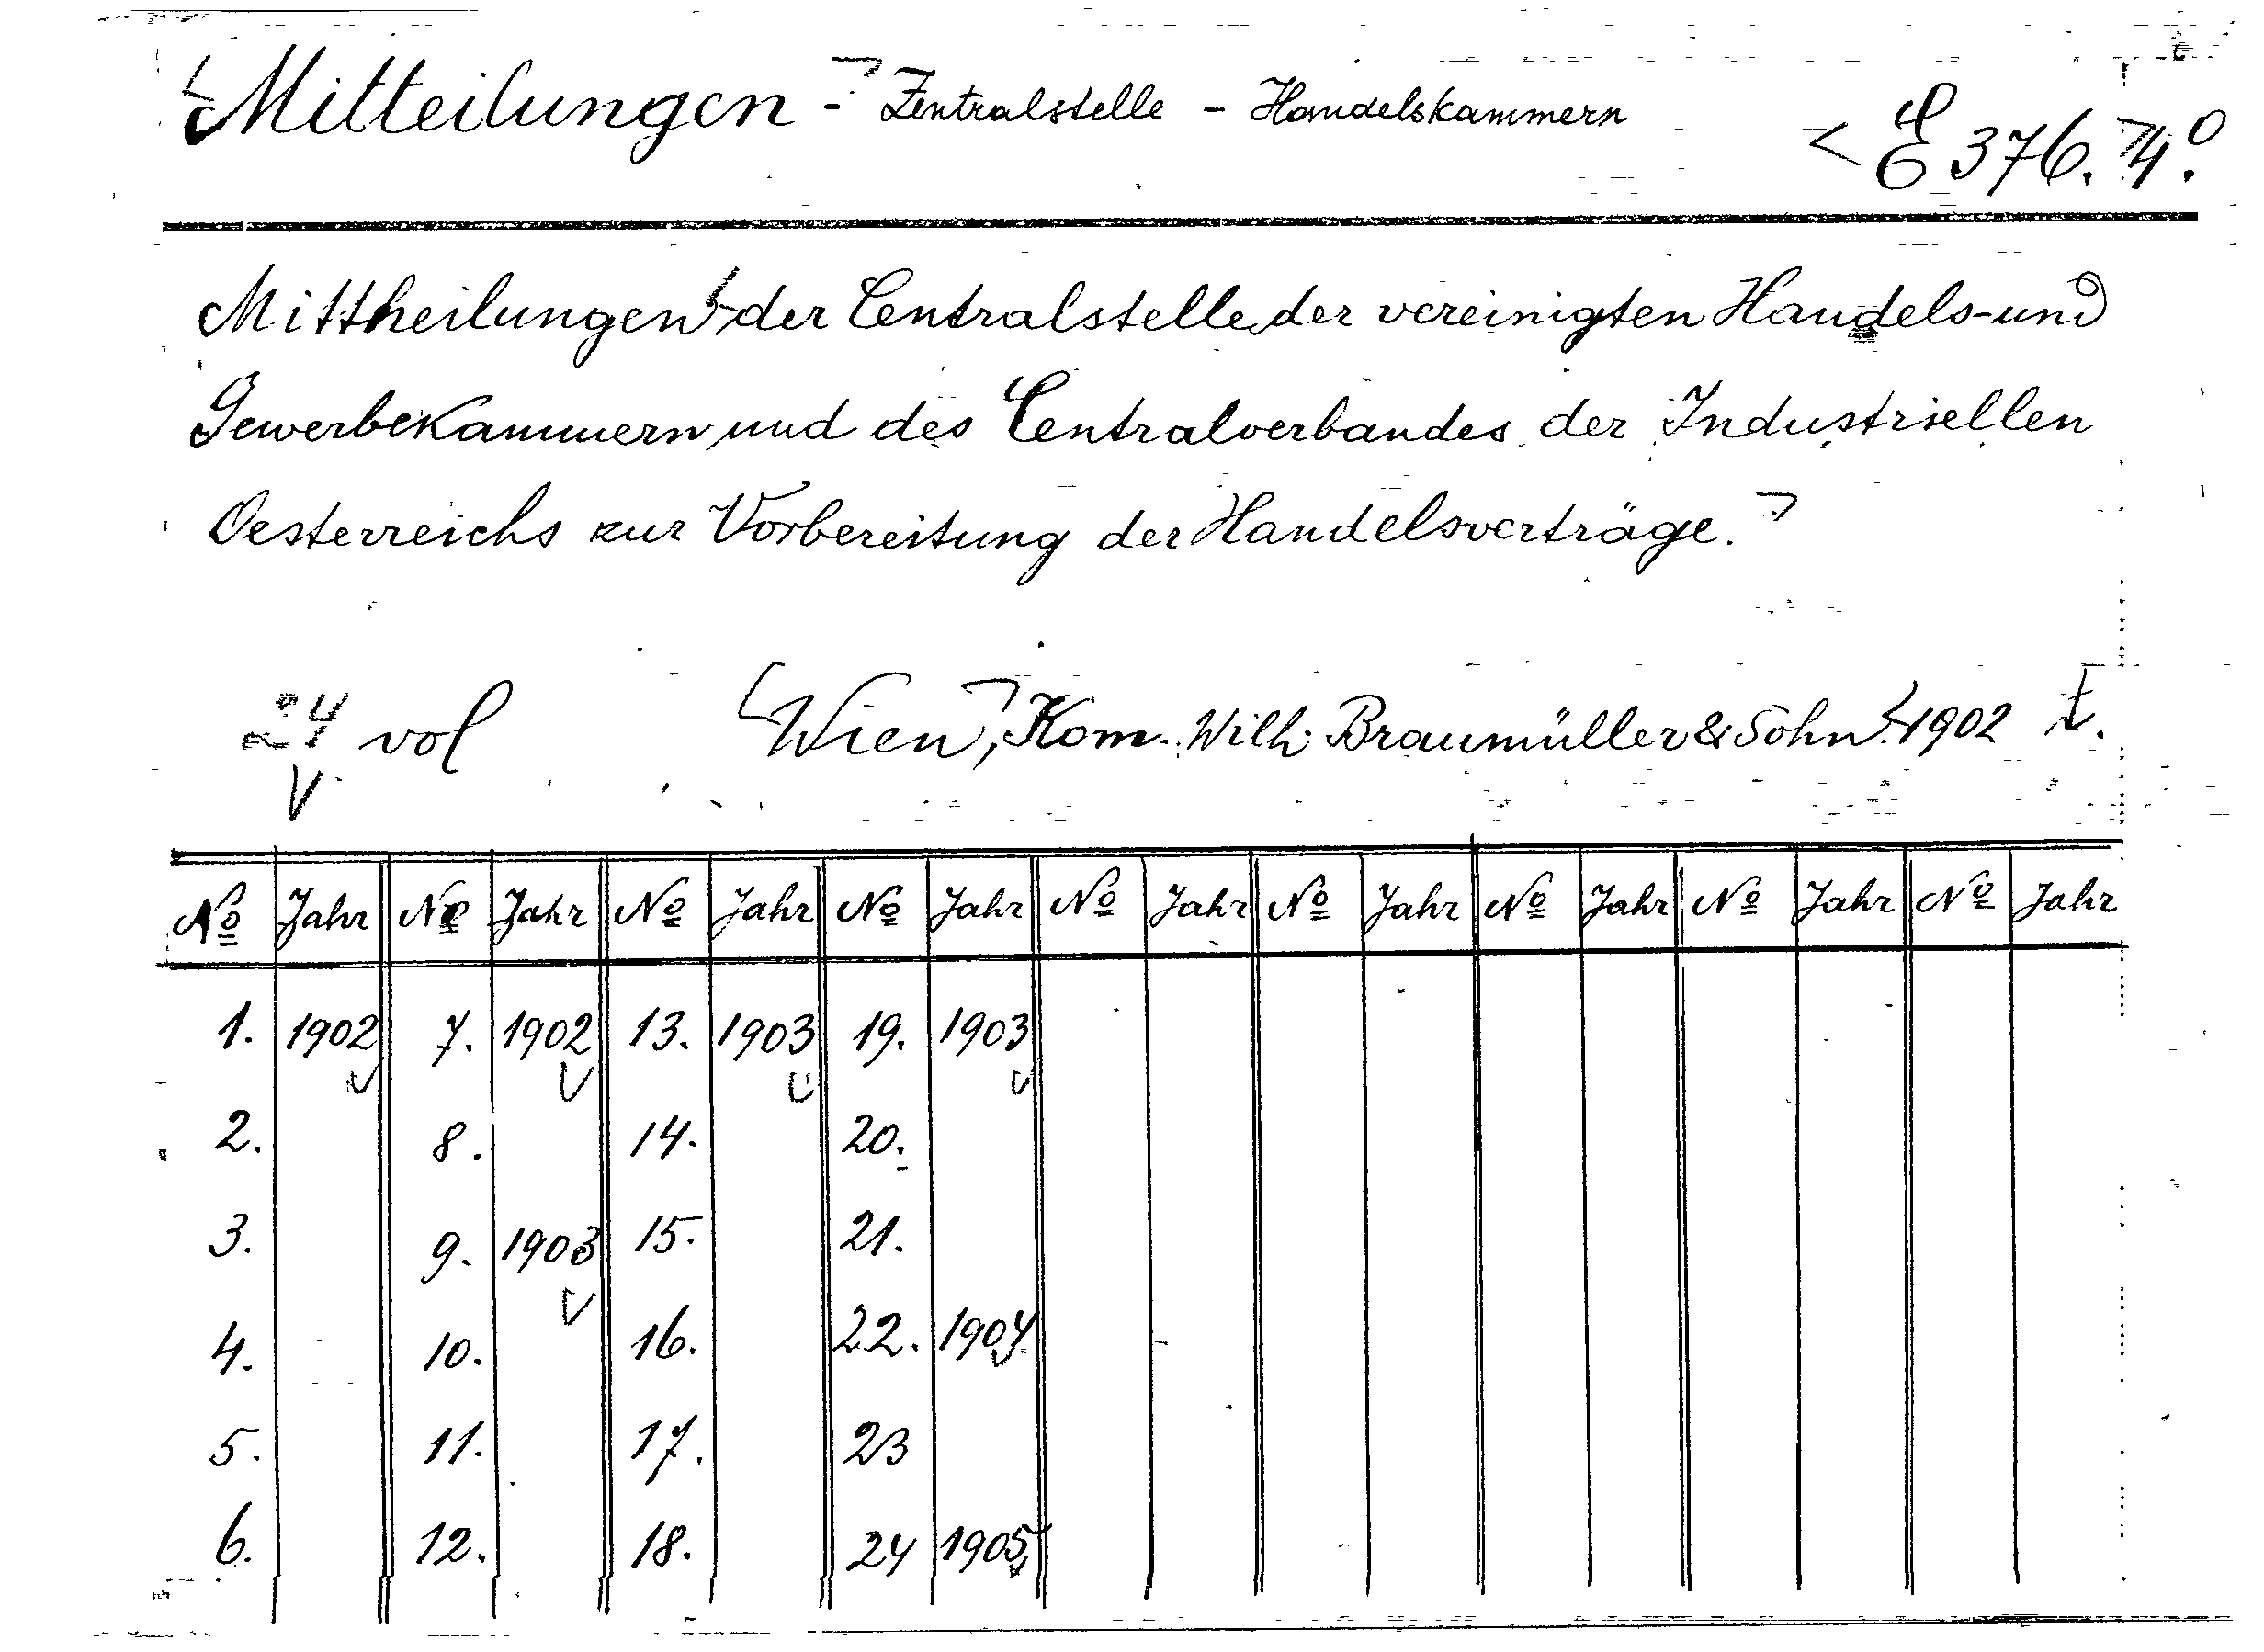 Mitteilungen - Zentralstelle - Handelskammern
E 376. 4º.
Mittheilungen der Centralstelle der vereinigten Handels- und
Gewerbekammern und des Centralverbandes der Industriellen
Oesterreichs zur Vorbereitung der Handelsverträge.
24 vol
Wien, Kom. Wilh. Braumüller & Sohn. 1902
Nº Jahr Nº Jahr Nº Jahr Nº Jahr Nº Jahr Nº Jahr Nº Jahr Nº Jahr Nº Jahr
1. 1902 7. 1902 13. 1903 19. 1903
2. 8. 14. 20.
3. 9. 1903 15. 21.
4. 10. 16. 22. 1904
5. 11. 17. 23
6. 12. 18. 24 1905